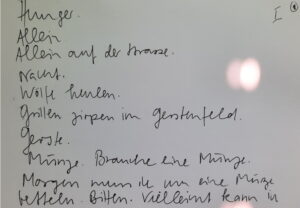 Hunger.
I
Allein.
Allein auf der Strasse.
Nacht.
Wölfe heulen.
Grillen zirpen im Gerstenfeld.
Gerste.
Münze. Brauche eine Münze.
Morgen muss ich um eine Münze
betteln. Bitten. Vielleicht kann in